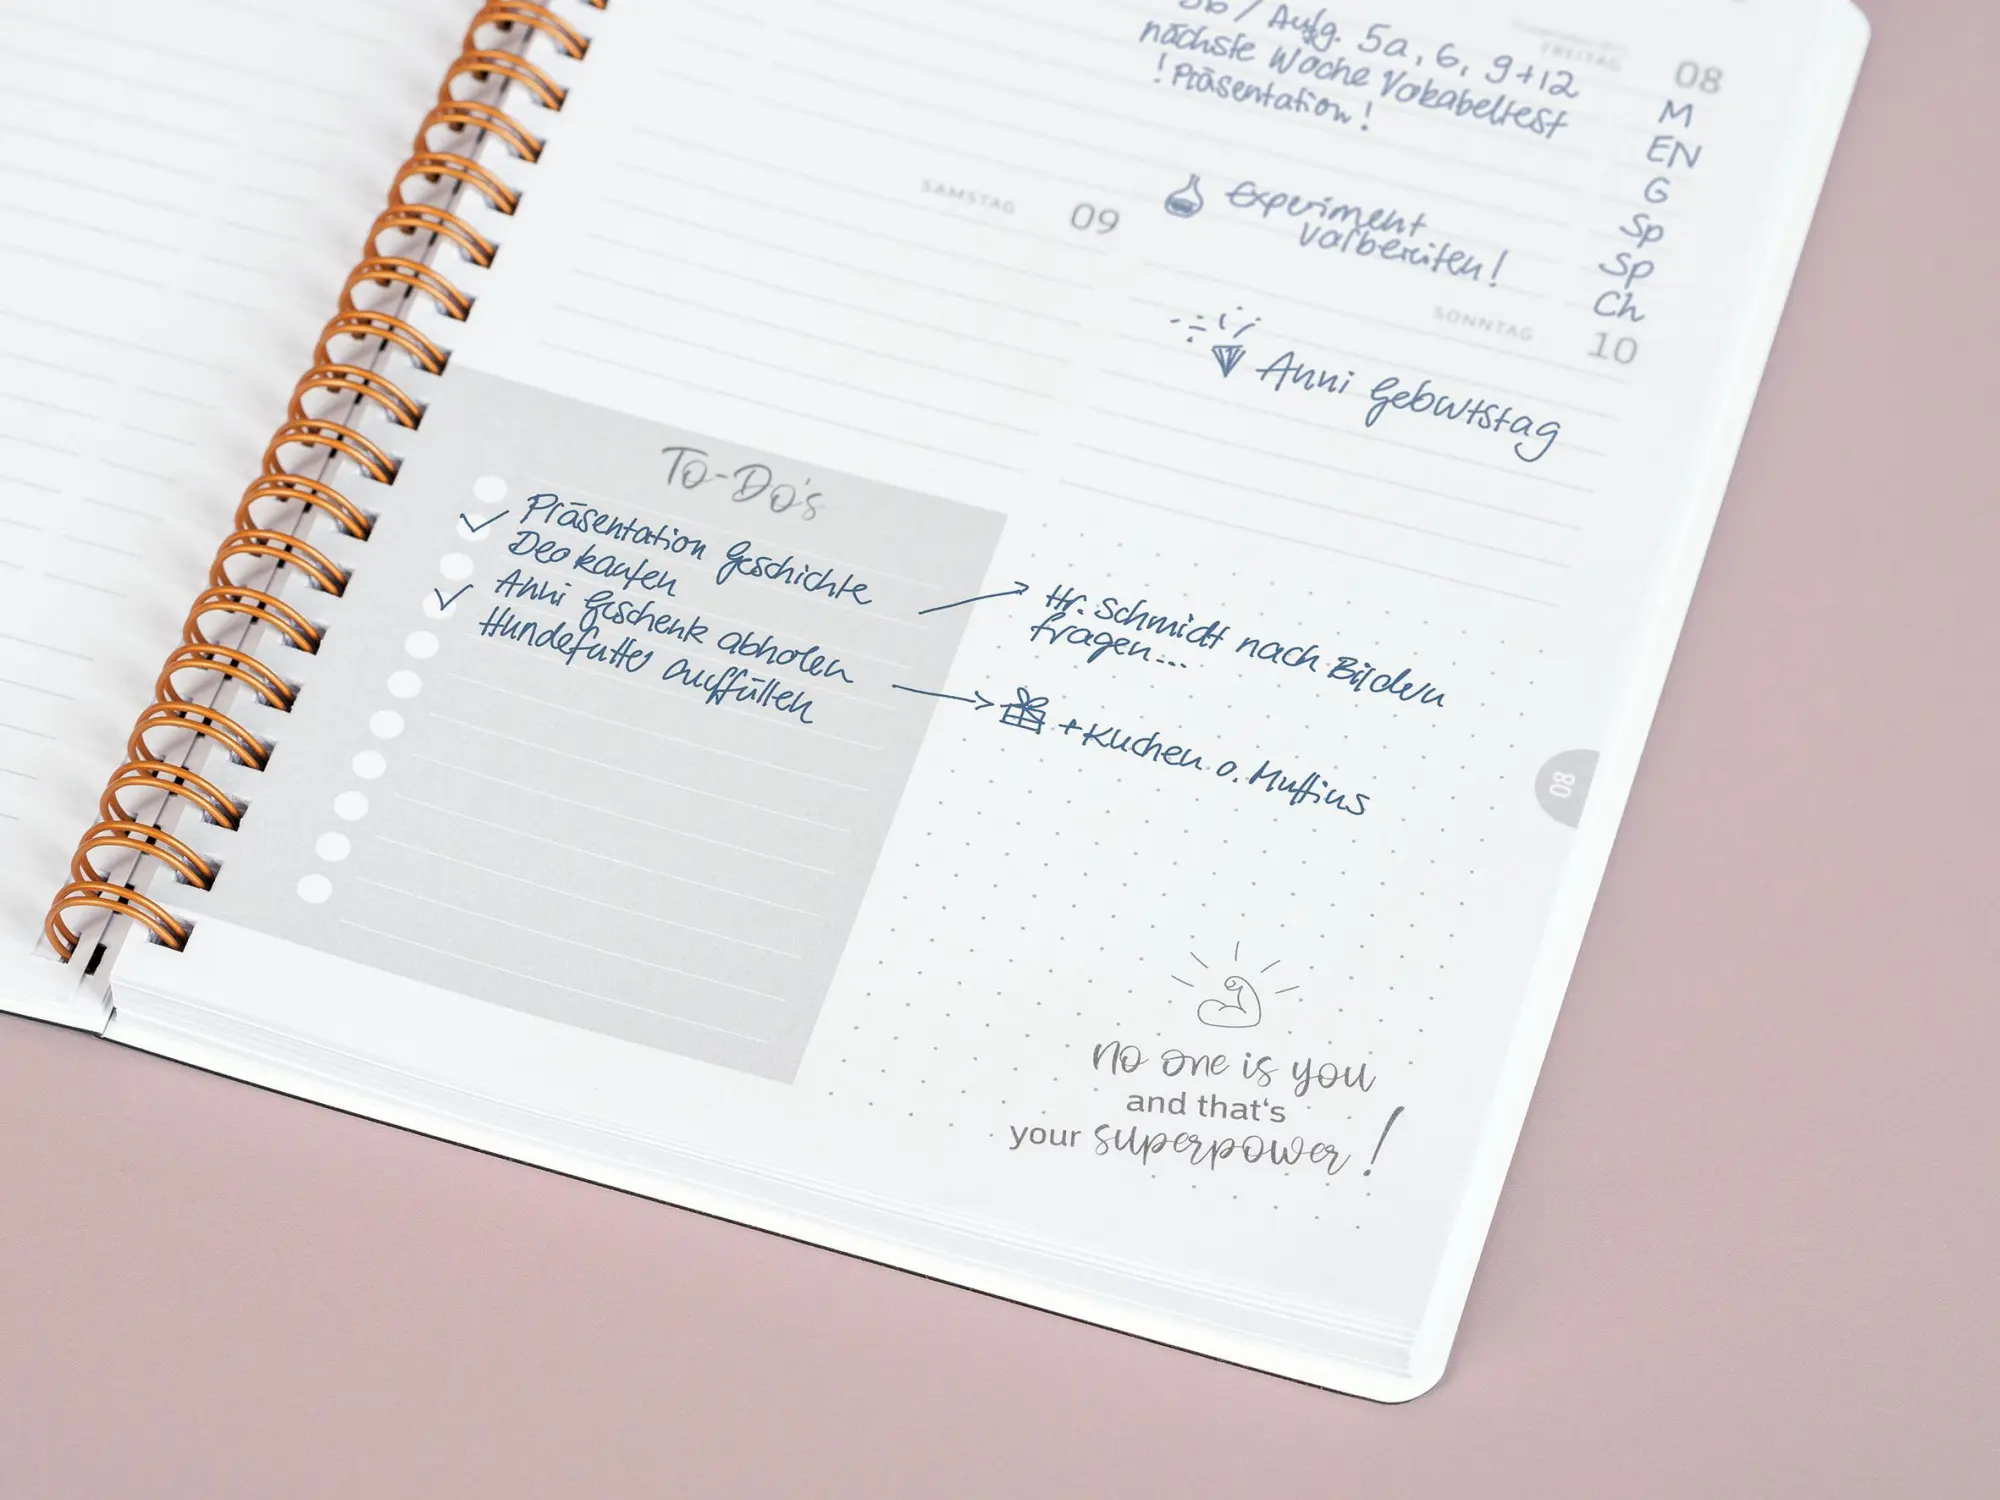 FREITAG 08
/ Aufg. 5a, 6, 9+12 M
nächste Woche Vokabeltest EN
! Präsentation ! G
Experiment Sp
vorbereiten! Sp
Ch
SAMSTAG 09
SONNTAG 10
Anni Geburtstag
To-Do's
Präsentation Geschichte
Deo kaufen
Anni Geschenk abholen
Hundefutter auffüllen
Hr. Schmidt nach Bildern
fragen...
+ Kuchen o. Muffins
08
no one is you
and that's
your superpower!